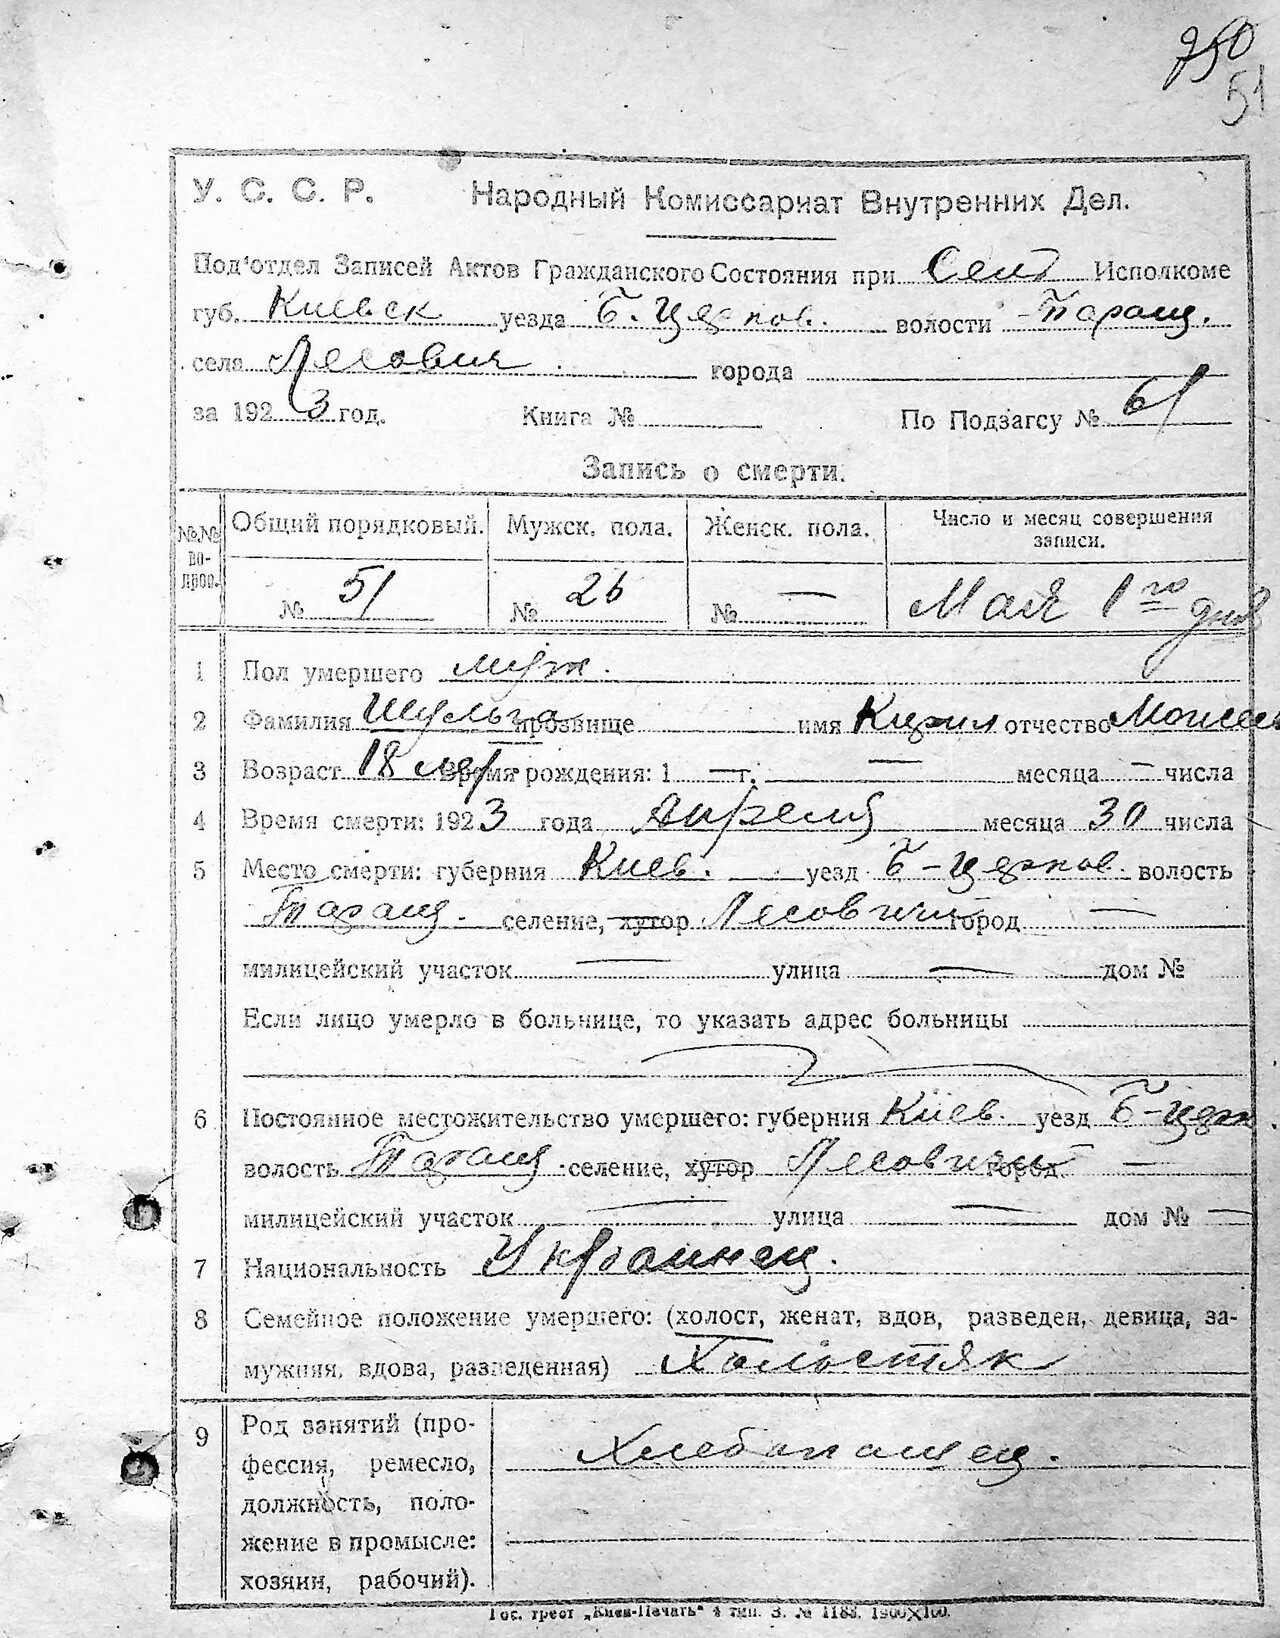 750
51
У. С. С. Р. Народный Комиссариат Внутренних Дел.
Под'отдел Записей Актов Гражданского Состояния при Исполкоме
губ. Киевск уезда Б. Церков. волости Таращ.
села города
за 1923 год. Книга № По Подзагсу № 61
Запись о смерти.
№№ во- прос. Общий порядковый. Мужск. пола. Женск. пола. Число и месяц совершения записи.
№ 51 № 26 № — Мая 1го дня
1 Пол умершего муж.
2 Фамилия Шульга прозвище имя Кирил отчество
3 Возраст 18 лет Время рождения: 1 — г. — месяца — числа
4 Время смерти: 1923 года Апреля месяца 30 числа
5 Место смерти: губерния Киев. уезд Б-Церков. волость
Таращ. селение, хутор Лесовичи город —
милицейский участок — улица — дом №
Если лицо умерло в больнице, то указать адрес больницы
6 Постоянное местожительство умершего: губерния Киев. уезд Б-Церк.
волость Таращ селение, хутор Лесовичи город —
милицейский участок — улица — дом № —
7 Национальность Украинец.
8 Семейное положение умершего: (холост, женат, вдов, разведен, девица, за-
мужняя, вдова, разведенная) Холостяк
9 Род занятий (про-
фессия, ремесло,
должность, поло-
жение в промысле:
хозяин, рабочий).
Хлебопашец.
Гос. трест „Киев-Печать“ 4 тип. З. № 1188. 1900×100.